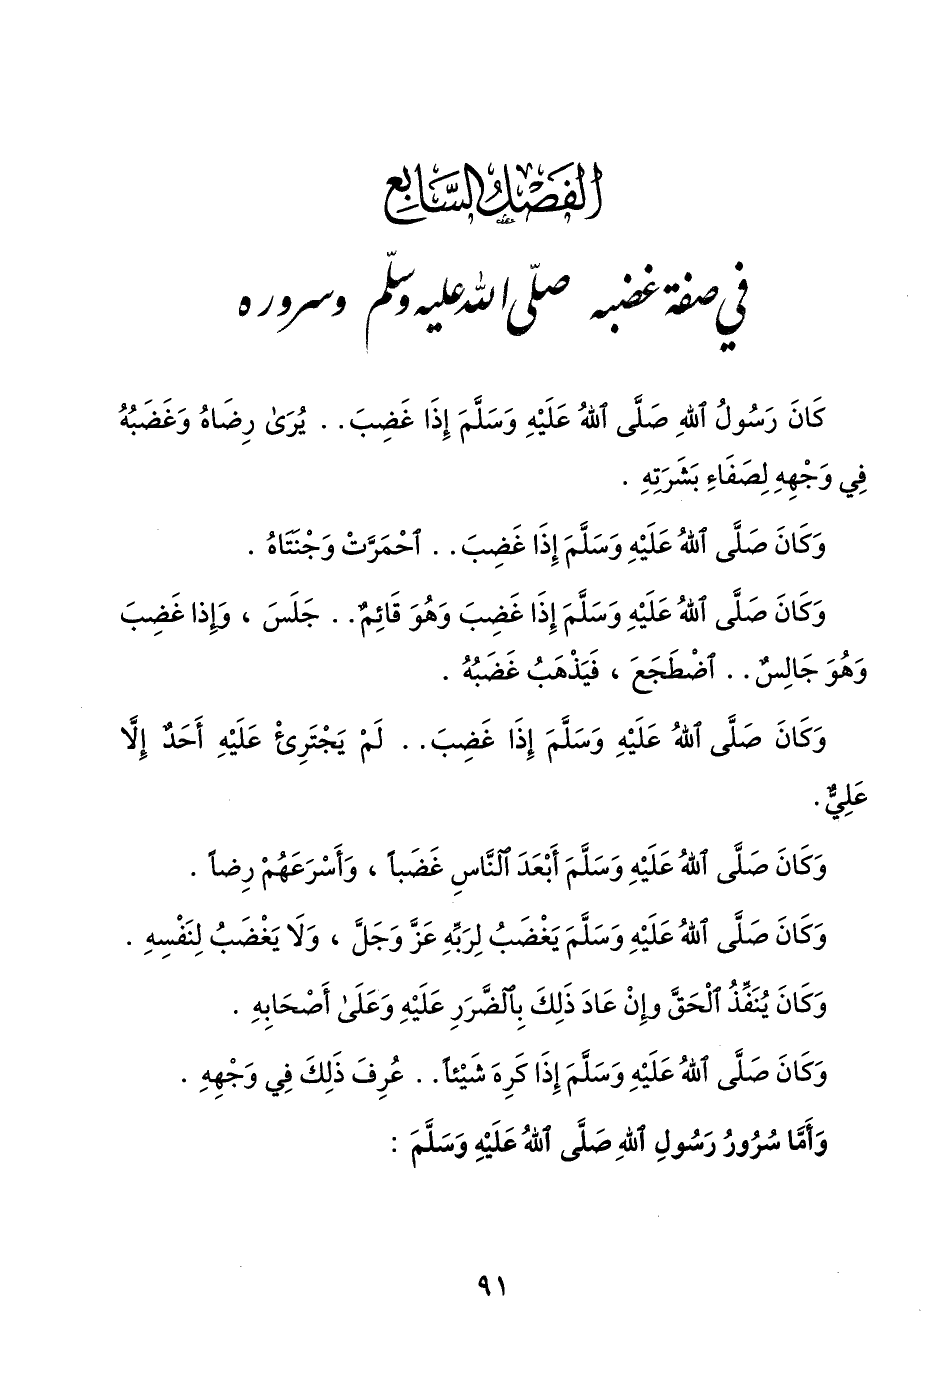 الفَصْلُ السَّابِع
في صفة غضبه صلّى الله عليه وسلّم وسروره
كَانَ رَسُولُ ٱللهِ صَلَّى ٱللهُ عَلَيْهِ وَسَلَّمَ إِذَا غَضِبَ.. يُرَىٰ رِضَاهُ وَغَضَبُهُ
فِي وَجْهِهِ لِصَفَاءِ بَشَرَتِهِ .
وَكَانَ صَلَّى ٱللهُ عَلَيْهِ وَسَلَّمَ إِذَا غَضِبَ.. ٱحْمَرَّتْ وَجْنَتَاهُ .
وَكَانَ صَلَّى ٱللهُ عَلَيْهِ وَسَلَّمَ إِذَا غَضِبَ وَهُوَ قَائِمٌ.. جَلَسَ ، وَإِذا غَضِبَ
وَهُوَ جَالِسٌ.. ٱضْطَجَعَ ، فَيَذْهَبُ غَضَبُهُ .
وَكَانَ صَلَّى ٱللهُ عَلَيْهِ وَسَلَّمَ إِذَا غَضِبَ.. لَمْ يَجْتَرِىءْ عَلَيْهِ أَحَدٌ إِلَّا
عَلِيٌّ.
وَكَانَ صَلَّى ٱللهُ عَلَيْهِ وَسَلَّمَ أَبْعَدَ ٱلنَّاسِ غَضَباً ، وَأَسْرَعَهُمْ رِضاً .
وَكَانَ صَلَّى ٱللهُ عَلَيْهِ وَسَلَّمَ يَغْضَبُ لِرَبِّهِ عَزَّ وَجَلَّ ، وَلَا يَغْضَبُ لِنَفْسِهِ .
وَكَانَ يُنَفِّذُ ٱلْحَقَّ وإِنْ عَادَ ذَلِكَ بِٱلضَّرَرِ عَلَيْهِ وَعَلَىٰ أَصْحَابِهِ .
وَكَانَ صَلَّى ٱللهُ عَلَيْهِ وَسَلَّمَ إِذَا كَرِهَ شَيْئاً.. عُرِفَ ذَلِكَ فِي وَجْهِهِ .
وَأَمَّا سُرُورُ رَسُولِ ٱللهِ صَلَّى ٱللهُ عَلَيْهِ وَسَلَّمَ :
٩١